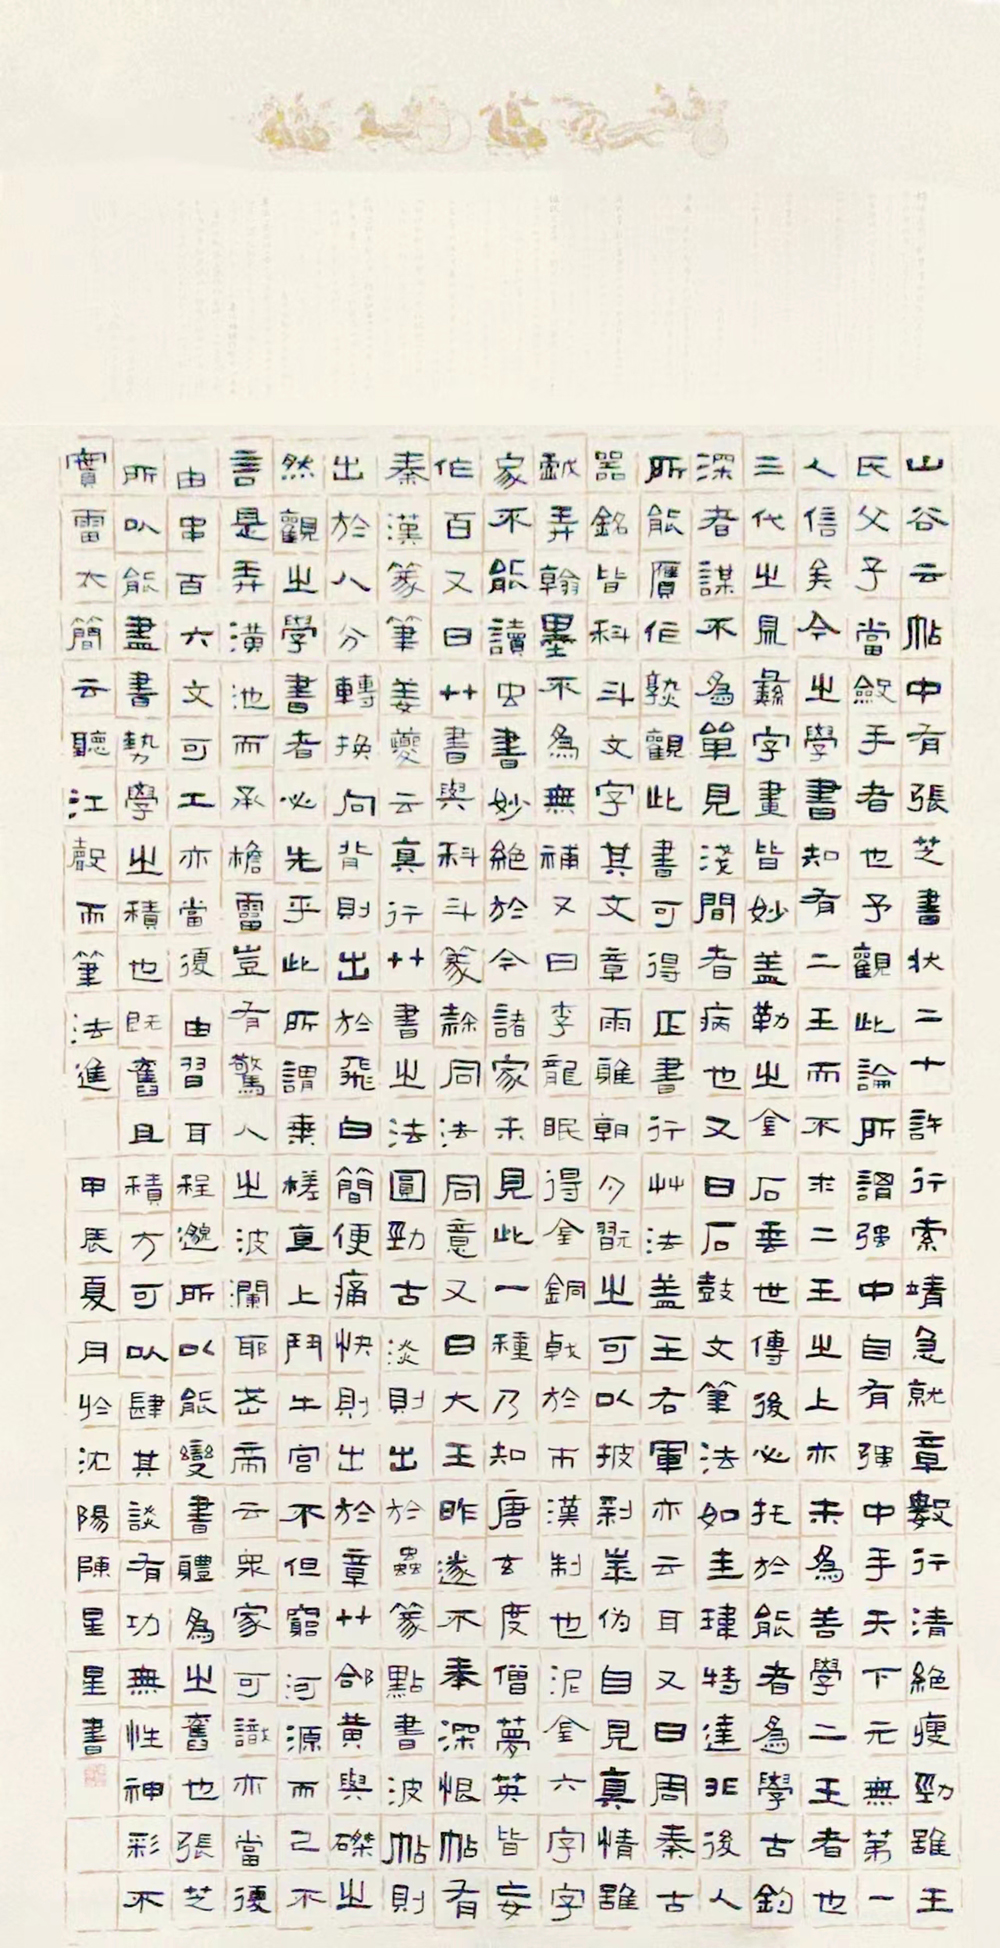 山谷云帖中有張芝書狀二十許行索靖急就章數行清絕瘦勁雖王
氏父子當斂手者也予觀此論所謂强中自有强中手天下元無第一
人信矣今之學書知有二王而不求二王之上亦未為善學二王者也
三代之鼎彝字畫皆妙蓋勒之金石垂世傳後必托於能者為學古鈞
深者謀不為單見淺聞者病也又曰石鼓文筆法如圭璋特達非後人
所能贋作熟觀此書可得正書行艸法蓋王右軍亦云耳又曰周秦古
器銘皆科斗文字其文章雨雖朝夕翫之可以披剥叢伪自見真情雖
戲弄翰墨不為無補又曰李龍眠得金銅戟於市漢制也泥金六字字
家不能讀虫書妙絕於今諸家未見此一種乃知唐玄度僧夢英皆妄
作百又曰艹書與科斗篆隸同法同意又曰大王昨遂不奉深恨帖有
秦漢篆筆姜夔云真行艹書之法圓勁古淡則出於蟲篆點書波帖則
出於八分轉换向背則出於飛白簡便痛快則出於章艹郃黄與磔之
然觀之學書者必先乎此所謂乘槎直上鬥牛宫不但窮河源而已不
言是弄潢池而承檐霤豈有驚人之波瀾耶芾帝云衆家可識亦當復
由串百六文可工亦當復由習耳程邈所以能變書體為之舊也張芝
所以能盡書勢學之積也既舊且積方可以肆其談有功無性神彩不
實雷太簡云聽江聲而筆法進
甲辰夏月於沈陽陳星星書